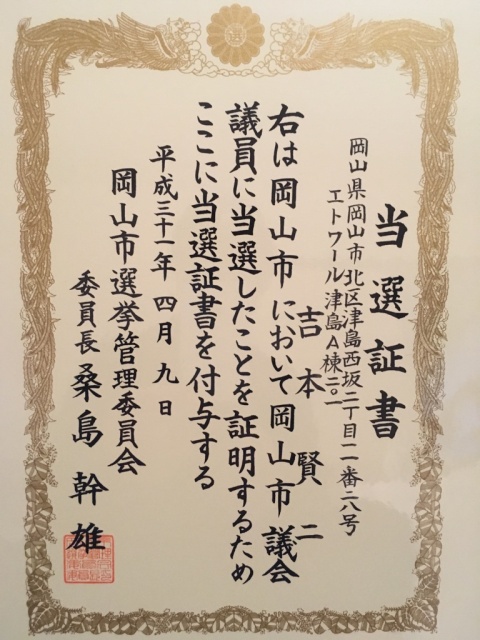 当選証書
岡山県岡山市北区津島西坂二丁目一番二八号
エトワール津島A棟二〇一
吉本賢二
右は岡山市において岡山市議会
議員に当選したことを証明するため
ここに当選証書を付与する
平成三十一年四月九日
岡山市選挙管理委員会
委員長桑島幹雄